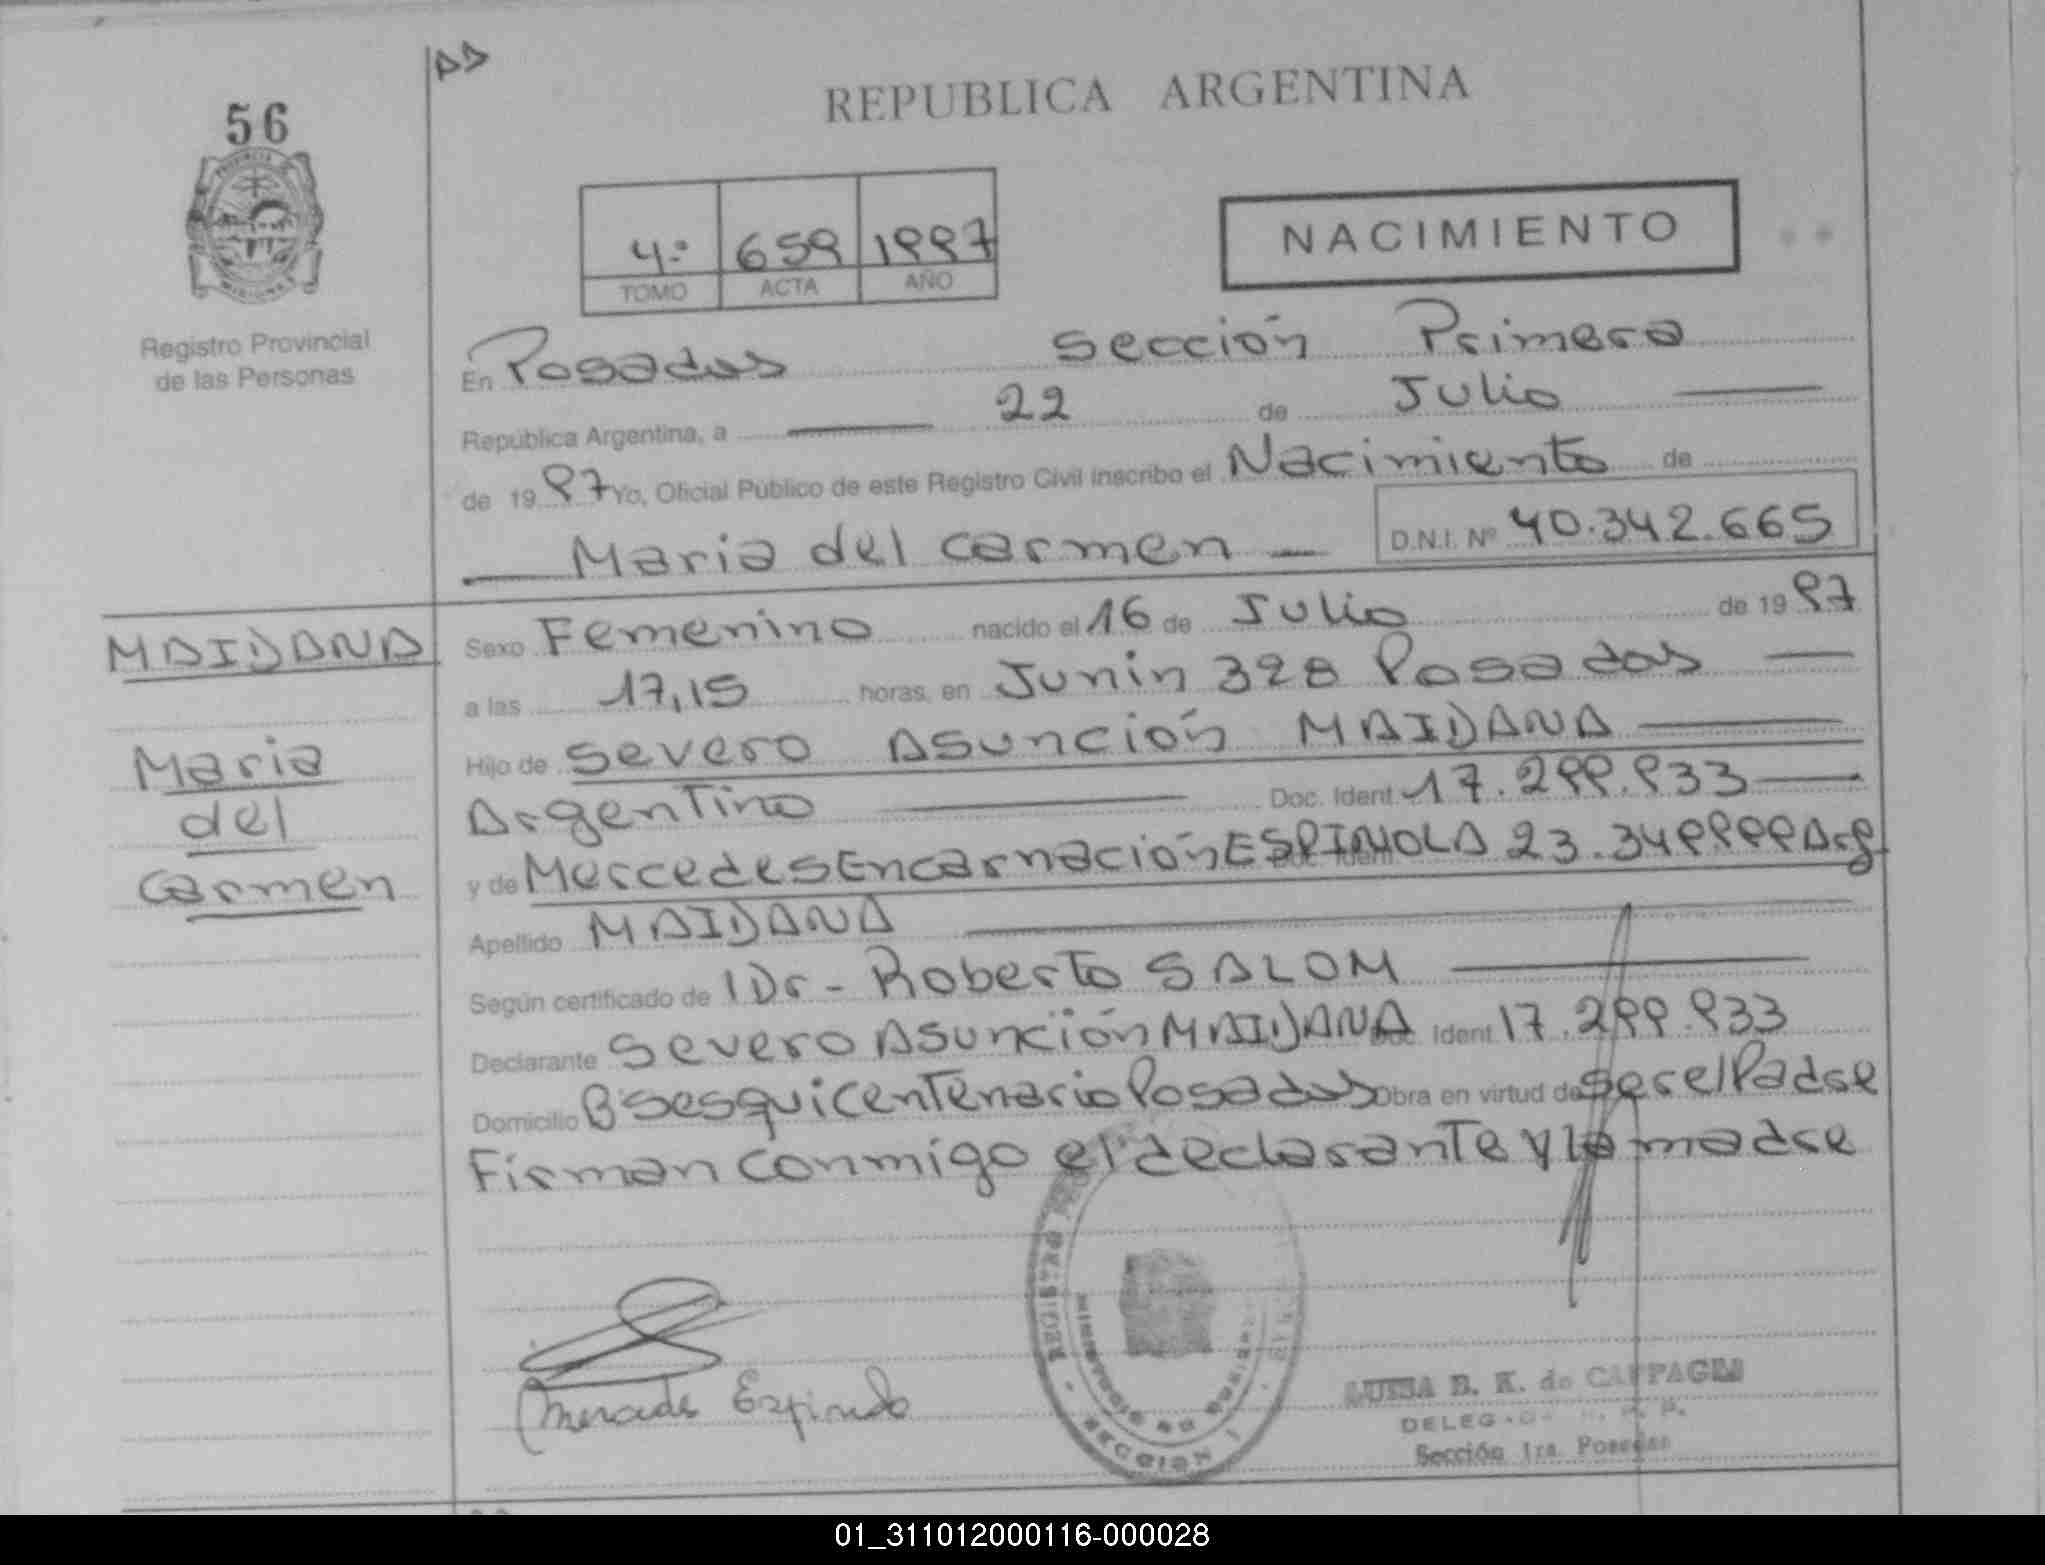 56
REPUBLICA ARGENTINA
4º 659 1997
TOMO ACTA AÑO
NACIMIENTO
Registro Provincial
de las Personas
En Posadas Sección Primera
República Argentina, a 22 de Julio
de 1997 Yo, Oficial Público de este Registro Civil inscribo el Nacimiento de
Maria del Carmen D.N.I. Nº 40.342.665
MAIDANA
Maria
del
Carmen
Sexo Femenino nacido el 16 de Julio de 1997
a las 17,15 horas, en Junin 328 Posadas
Hijo de Severo Asunción MAIDANA
Argentino Doc. Ident. 17.299.933
y de Mercedes Encarnación ESPINOLA 23.349999 Arg
Apellido MAIDANA
Según certificado de Dr- Roberto SALOM
Declarante Severo Asunción MAIDANA Doc. Ident. 17.299.933
Domicilio Bº Sesquicentenario Posadas Obra en virtud de Ser el Padre
Firman conmigo el declarante y la madre
SECCION 1
LUISA B. K. de
Sección 1ra. Posadas
01_311012000116-000028